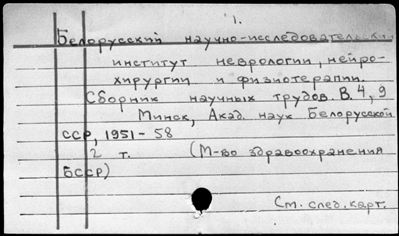 1.
Белорусский научно-исследовательский
институт неврологии, нейро-
хирургии и физиотерапии.
Сборник научных трудов. В. 4, 9
Минск, Акад. наук Белорусской
ССР, 1951-58
2 т. (М-во здравоохранения
БССР)
См. след. карт.